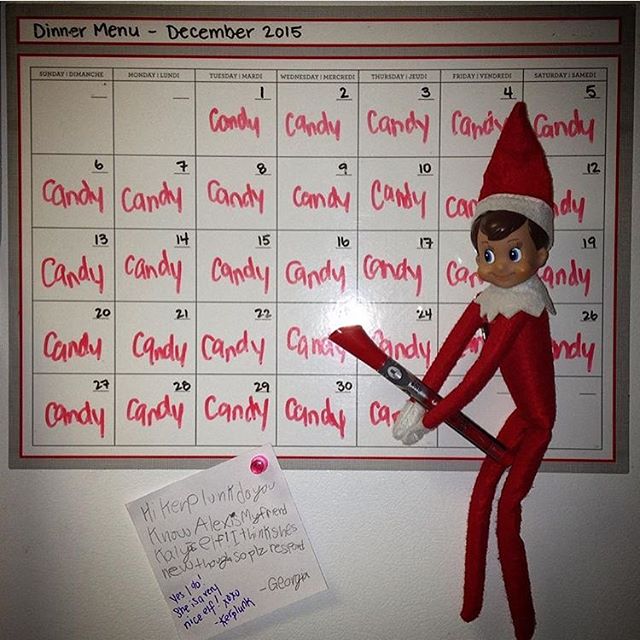 Dinner Menu - December 2015
SUNDAY | DIMANCHE MONDAY | LUNDI TUESDAY | MARDI WEDNESDAY | MERCREDI THURSDAY | JEUDI FRIDAY | VENDREDI SATURDAY | SAMEDI
1 2 3 4 5
Candy Candy Candy Candy Candy
6 7 8 9 10 12
Candy Candy Candy Candy Candy Can ndy
13 14 15 16 17 19
Candy Candy Candy Candy Candy Can andy
20 21 22 24 26
Candy Candy Candy Candy andy
27 28 29 30
Candy Candy Candy Candy Can
Hi Kerplunk do you
Know Alex is My friend
elf! I think shes
new though so plz respond
-Georgia
Yes I do!
She is a very
nice elf! xoxo
-Kerplunk